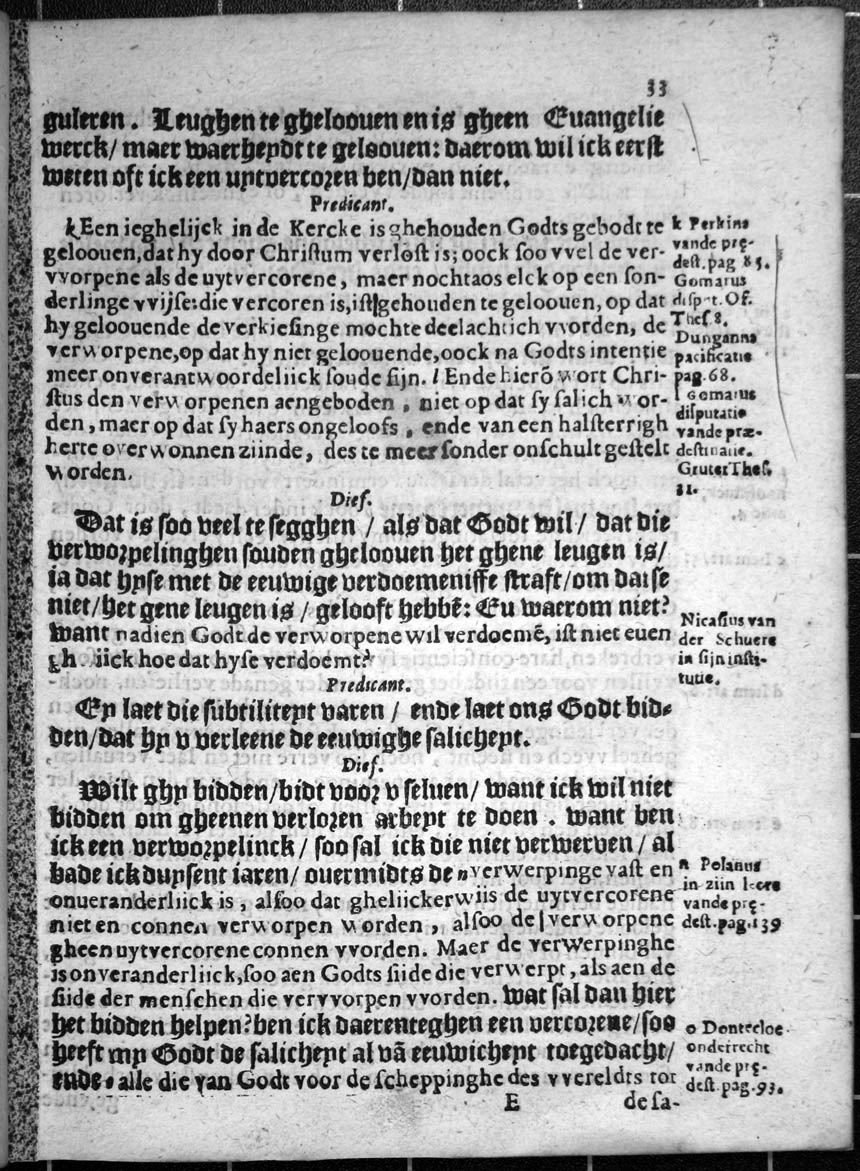 33
guleren. Leughen te gheloouen en is gheen Euangelie
werck/ maer waerheydt te gelooven: daerom wil ick eerst
weten oft ick een uytvercoren ben/dan niet.
Predicant.
k Een ieghelijck in de Kercke is ghehouden Godts gebodt te
geloouen, dat hy door Christum verlost is; oock soo vvel de ver-
vvorpene als de uytvercorene, maer nochtaos elck op een son-
derlinge vvijse: die vercoren is, ist gehouden te geloouen, op dat
hy geloouende de verkiesinge mochte deelachtich vvorden, de
verworpene, op dat hy niet geloouende, oock na Godts intentie
meer onverantwoordeliick soude sijn. l Ende hierō wort Chri-
stus den verworpenen aengeboden, niet op dat sy salich wor-
den, maer op dat sy haers ongeloofs, ende van een halsterrigh
herte overwonnen ziinde, des te meer sonder onschult gestelt
worden.
k Perkins
vande prę-
dest. pag 85.
Gomarus
disput. Of.
Thes. 8.
Dunganns
pacificatie
pag. 68.
l Gomarus
disputatio
vande præ-
destinatie.
Gruter Thes.
11.
Dief.
Dat is soo veel te segghen / als dat Godt wil / dat die
verworpelinghen souden gheloouen het ghene leugen is/
ia dat hyse met de eeuwige verdoemenisse straft/om dat se
niet/het gene leugen is / gelooft hebbē: Eu waerom niet?
want nadien Godt de verworpene wil verdoemē, ist niet euen
gh iick hoe dat hyse verdoemt?
Nicasius van
der Schuere
in sijn insti-
tutie.
Predicant.
Ey laet die subtiliteyt varen / ende laet ons Godt bid-
den/dat hy v verleene de eeuwighe salicheyt.
Dief.
Wilt ghy bidden/bidt voor v seluen/ want ick wil niet
bidden om gheenen verloren arbeyt te doen. want ben
ick een verworpelinck / soo sal ick die niet verwerven / al
bade ick duysent iaren/ ouermidts de n verwerpinge vast en
onueranderliick is, alsoo dat gheliickerwiis de uytvercorene
niet en connen verworpen worden, alsoo de verworpene
gheen uytvercorene connen vvorden. Maer de verwerpinghe
is onveranderliick, soo aen Godts siide die verwerpt, als aen de
siide der menschen die vervvorpen vvorden. wat sal dan hier
het bidden helpen? ben ick daerenteghen een vercorene/soo
heeft my Godt de salicheyt al vā eeuwicheyt toegedacht/
ende o alle die van Godt voor de scheppinghe des vvereldts tot
n Polanus
in ziin leere
vande prę-
dest. pag. 139
o Donteeloe
onderrecht
vande prę-
dest. pag. 93.
E
de sa-